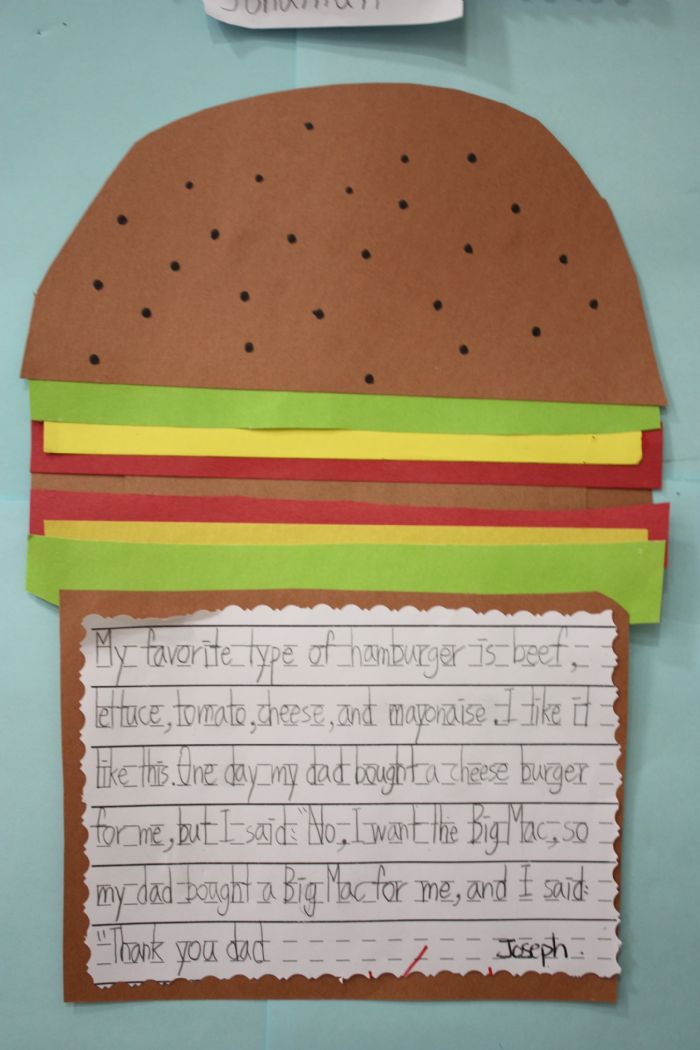 Jonathan
My favorite type of hamburger is beef,
lettuce, tomato, cheese, and mayonaise. I like it
like this. One day my dad bought a cheese burger
for me, but I said: "No, I want the Big Mac, so
my dad bought a Big Mac for me, and I said:
"Thank you dad
Joseph.